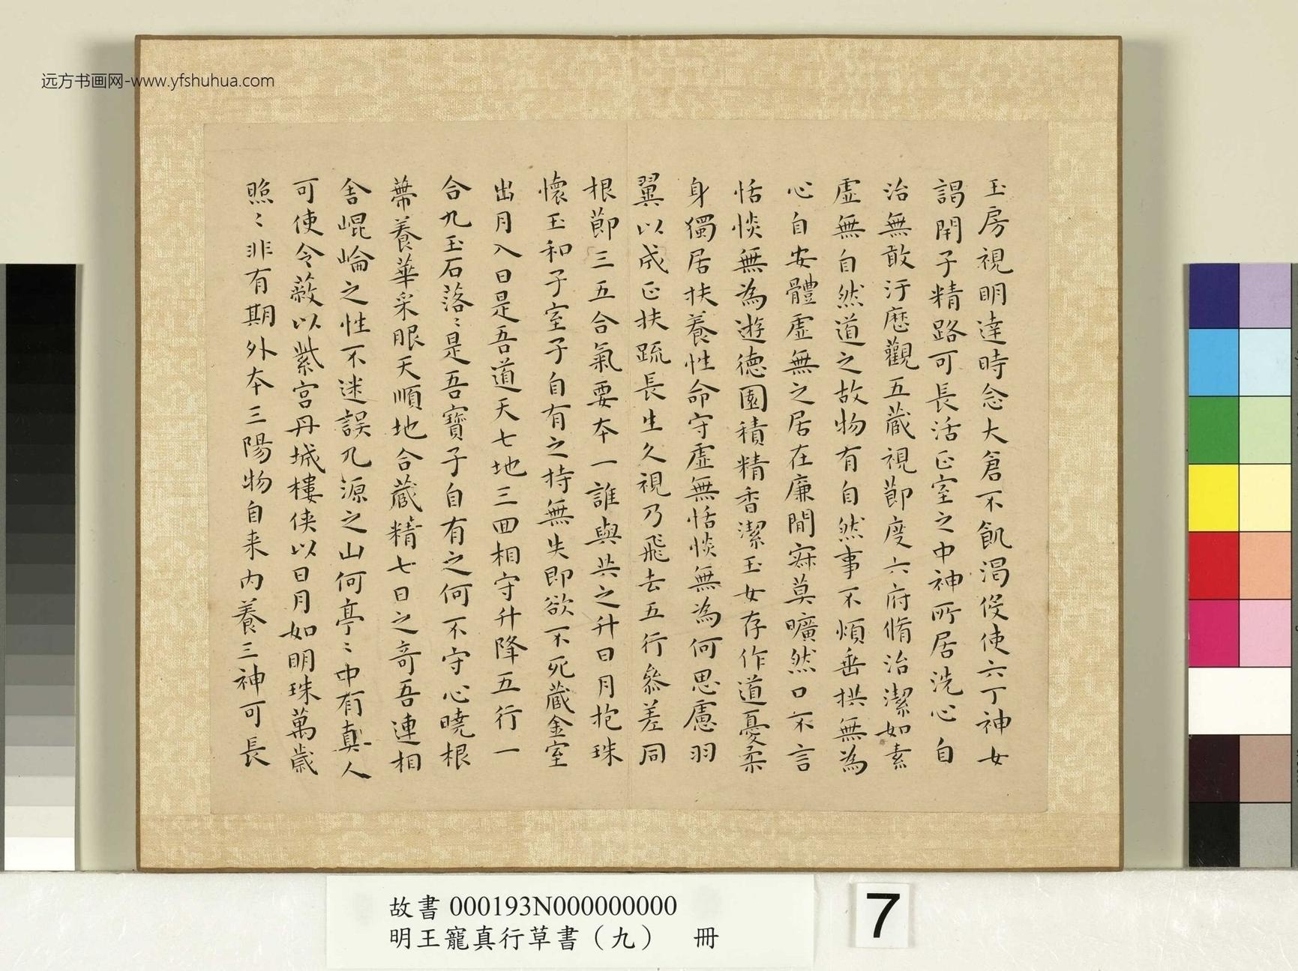 远方书画网-www.yfshuhua.com
玉房視明達時念大倉不飢渴伇使六丁神女
謁閇子精路可長活正室之中神所居洗心自
治無敢汙歷觀五藏視節度六府脩治潔如素
虛無自然道之故物有自然事不煩垂拱無為
心自安體虛無之居在廉間寂莫曠然口不言
恬惔無為遊德園積精香潔玉女存作道憂柔
身獨居扶養性命守虛無恬惔無為何思慮羽
翼以成正扶疏長生久視乃飛去五行參差同
根節三五合氣要本一誰與共之升日月抱珠
懷玉和子室子自有之持無失即欲不死藏金室
出月入日是吾道天七地三四相守升降五行一
合九玉石落〻是吾寶子自有之何不守心曉根
蔕養華采眼天順地合藏精七日之奇吾連相
舍崐崘之性不迷誤九源之山何亭〻中有真人
可使令蔽以紫宮丹城樓俠以日月如明珠萬歲
照〻非有期外本三陽物自来內養三神可長
故書 000193N000000000
明王寵真行草書（九） 冊
7